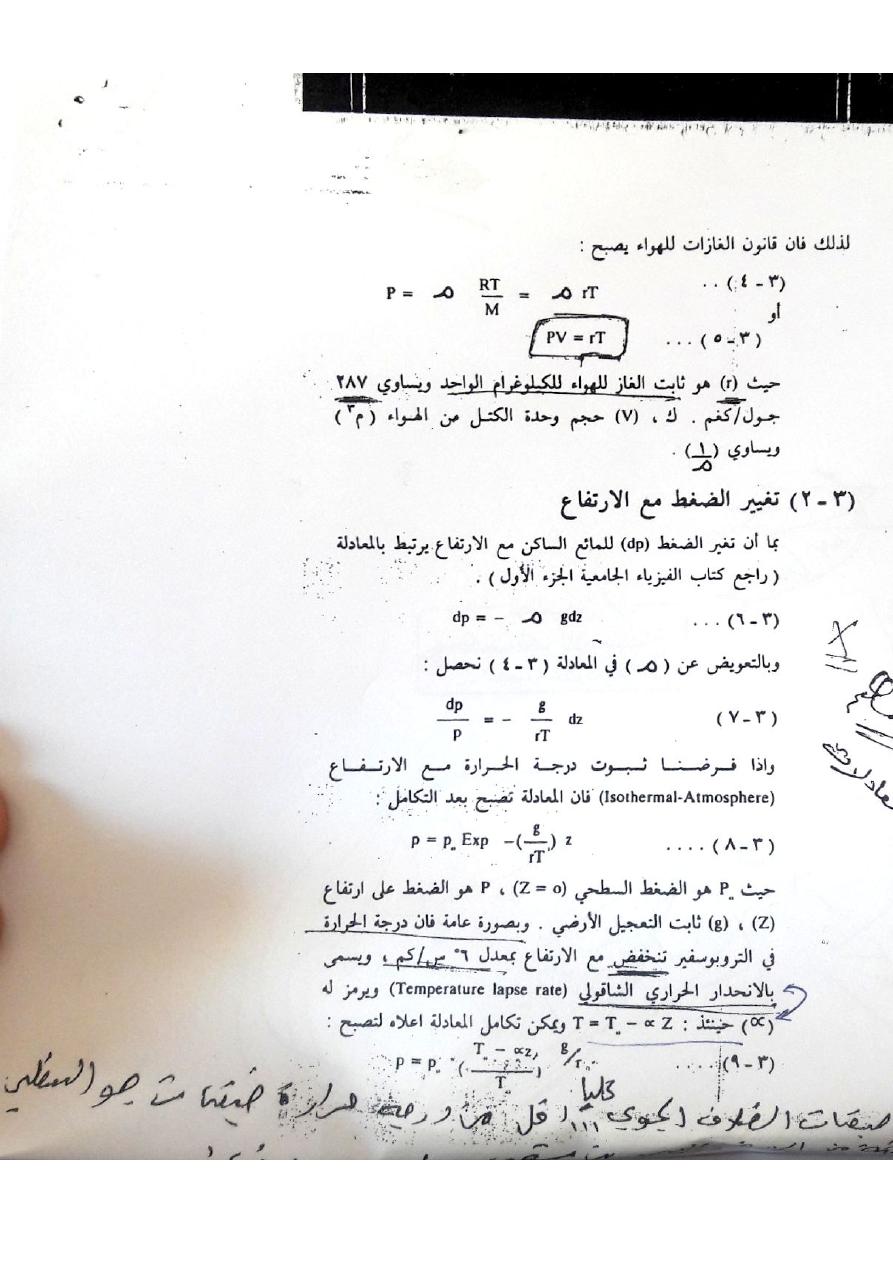 لذلك فان قانون الغازات للهواء يصبح :
P = ⍴ RT/M = ⍴ rT .. (٣ - ٤)
أو
PV = rT ... (٣ - ٥)
حيث (r) هو ثابت الغاز للهواء للكيلوغرام الواحد ويساوي ٢٨٧
جول/كغم . ك ، (V) حجم وحدة الكتل من الهواء (م٣)
ويساوي (١/⍴) .
(٣ - ٢) تغيير الضغط مع الارتفاع
بما أن تغير الضغط (dp) للمائع الساكن مع الارتفاع يرتبط بالمعادلة
( راجع كتاب الفيزياء الجامعية الجزء الأول ) .
dp = - ⍴ gdz ... (٣-٦)
وبالتعويض عن (⍴) في المعادلة (٣ - ٤) نحصل :
dp/p = - g/rT dz (٣-٧)
واذا فرضنا ثبوت درجة الحرارة مع الارتفاع
(Isothermal-Atmosphere) فان المعادلة تصبح بعد التكامل :
p = p. Exp -(g/rT) z .... (٣-٨)
حيث P. هو الضغط السطحي (Z = o) ، P هو الضغط على ارتفاع
(Z) ، (g) ثابت التعجيل الأرضي . وبصورة عامة فان درجة الحرارة
في التروبوسفير تنخفض مع الارتفاع بمعدل ٦° س/كم ، ويسمى
بالانحدار الحراري الشاقولي (Temperature lapse rate) ويرمز له
(∝) حينئذ : T = T. - ∝ Z ويمكن تكامل المعادلة اعلاه لتصبح :
p = p. (T. - ∝z/T) g/r .... (٣-٩)
طبقات الغلاف الجوي اقل من درجة حرارة طبقات جو السفلي